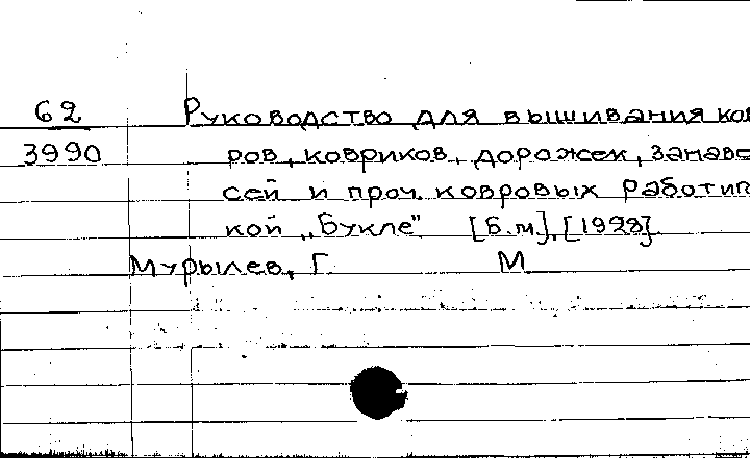 62 Руководство для вышивания ков
3990 ров, ковриков, дорожек, занаве
сей и проч. ковровых работ иг
кой „Букле" [Б.м], [1928].
Мурылев, Г М